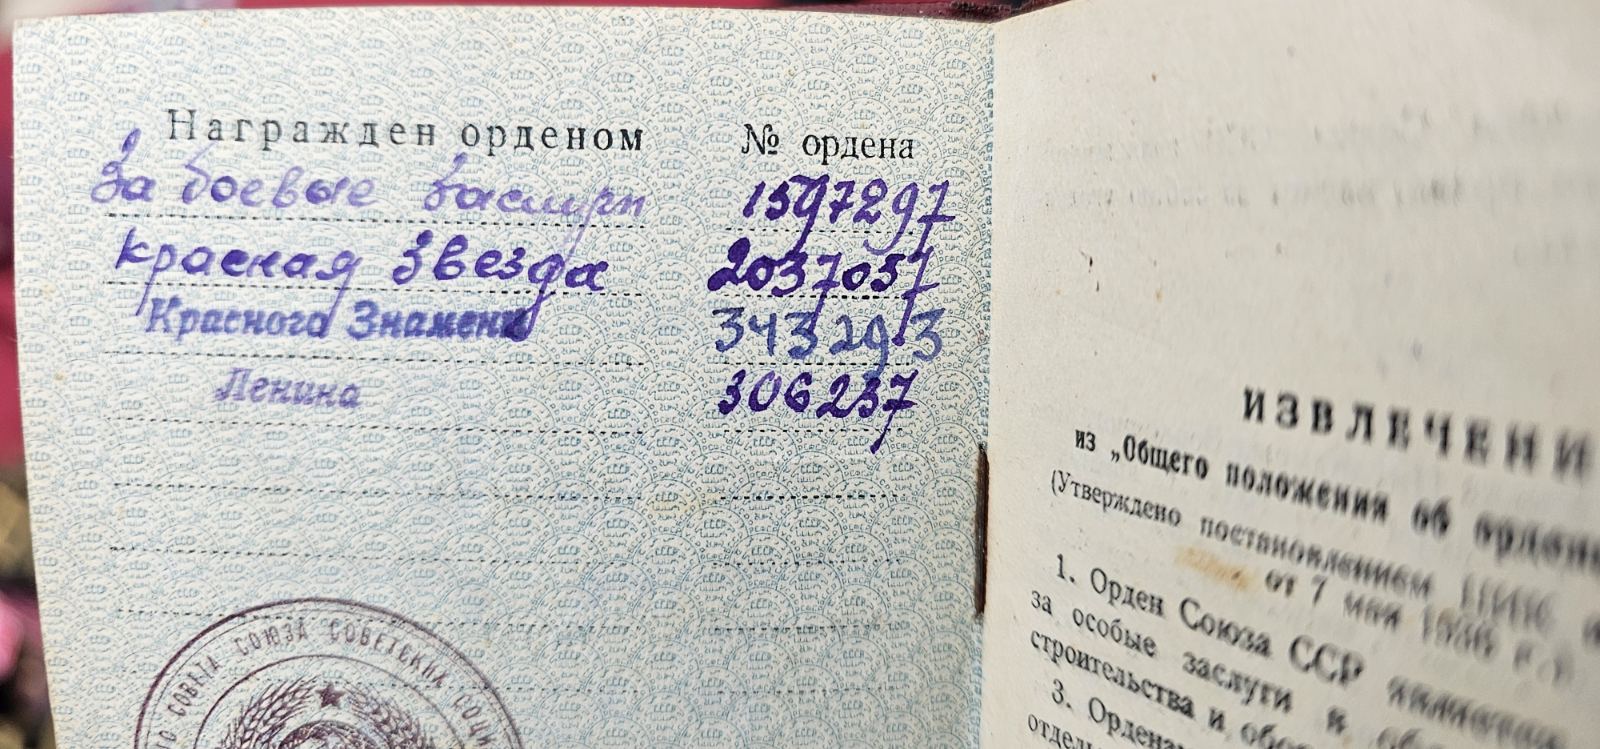 Награжден орденом № ордена
За боевые заслуги 1597297
Красная Звезда 2037057
Красного Знамени 343293
Ленина 306237
СОВЕТА СОЮЗА СОВЕТСКИХ СОЦИ
ИЗВЛЕЧЕНИ
из „Общего положения об ордена
(Утверждено постановлением ЦИК
от 7 мая 1936 г.)
1. Орден Союза ССР является
за особые заслуги в об
строительства и обо
3. Ордена
отдель